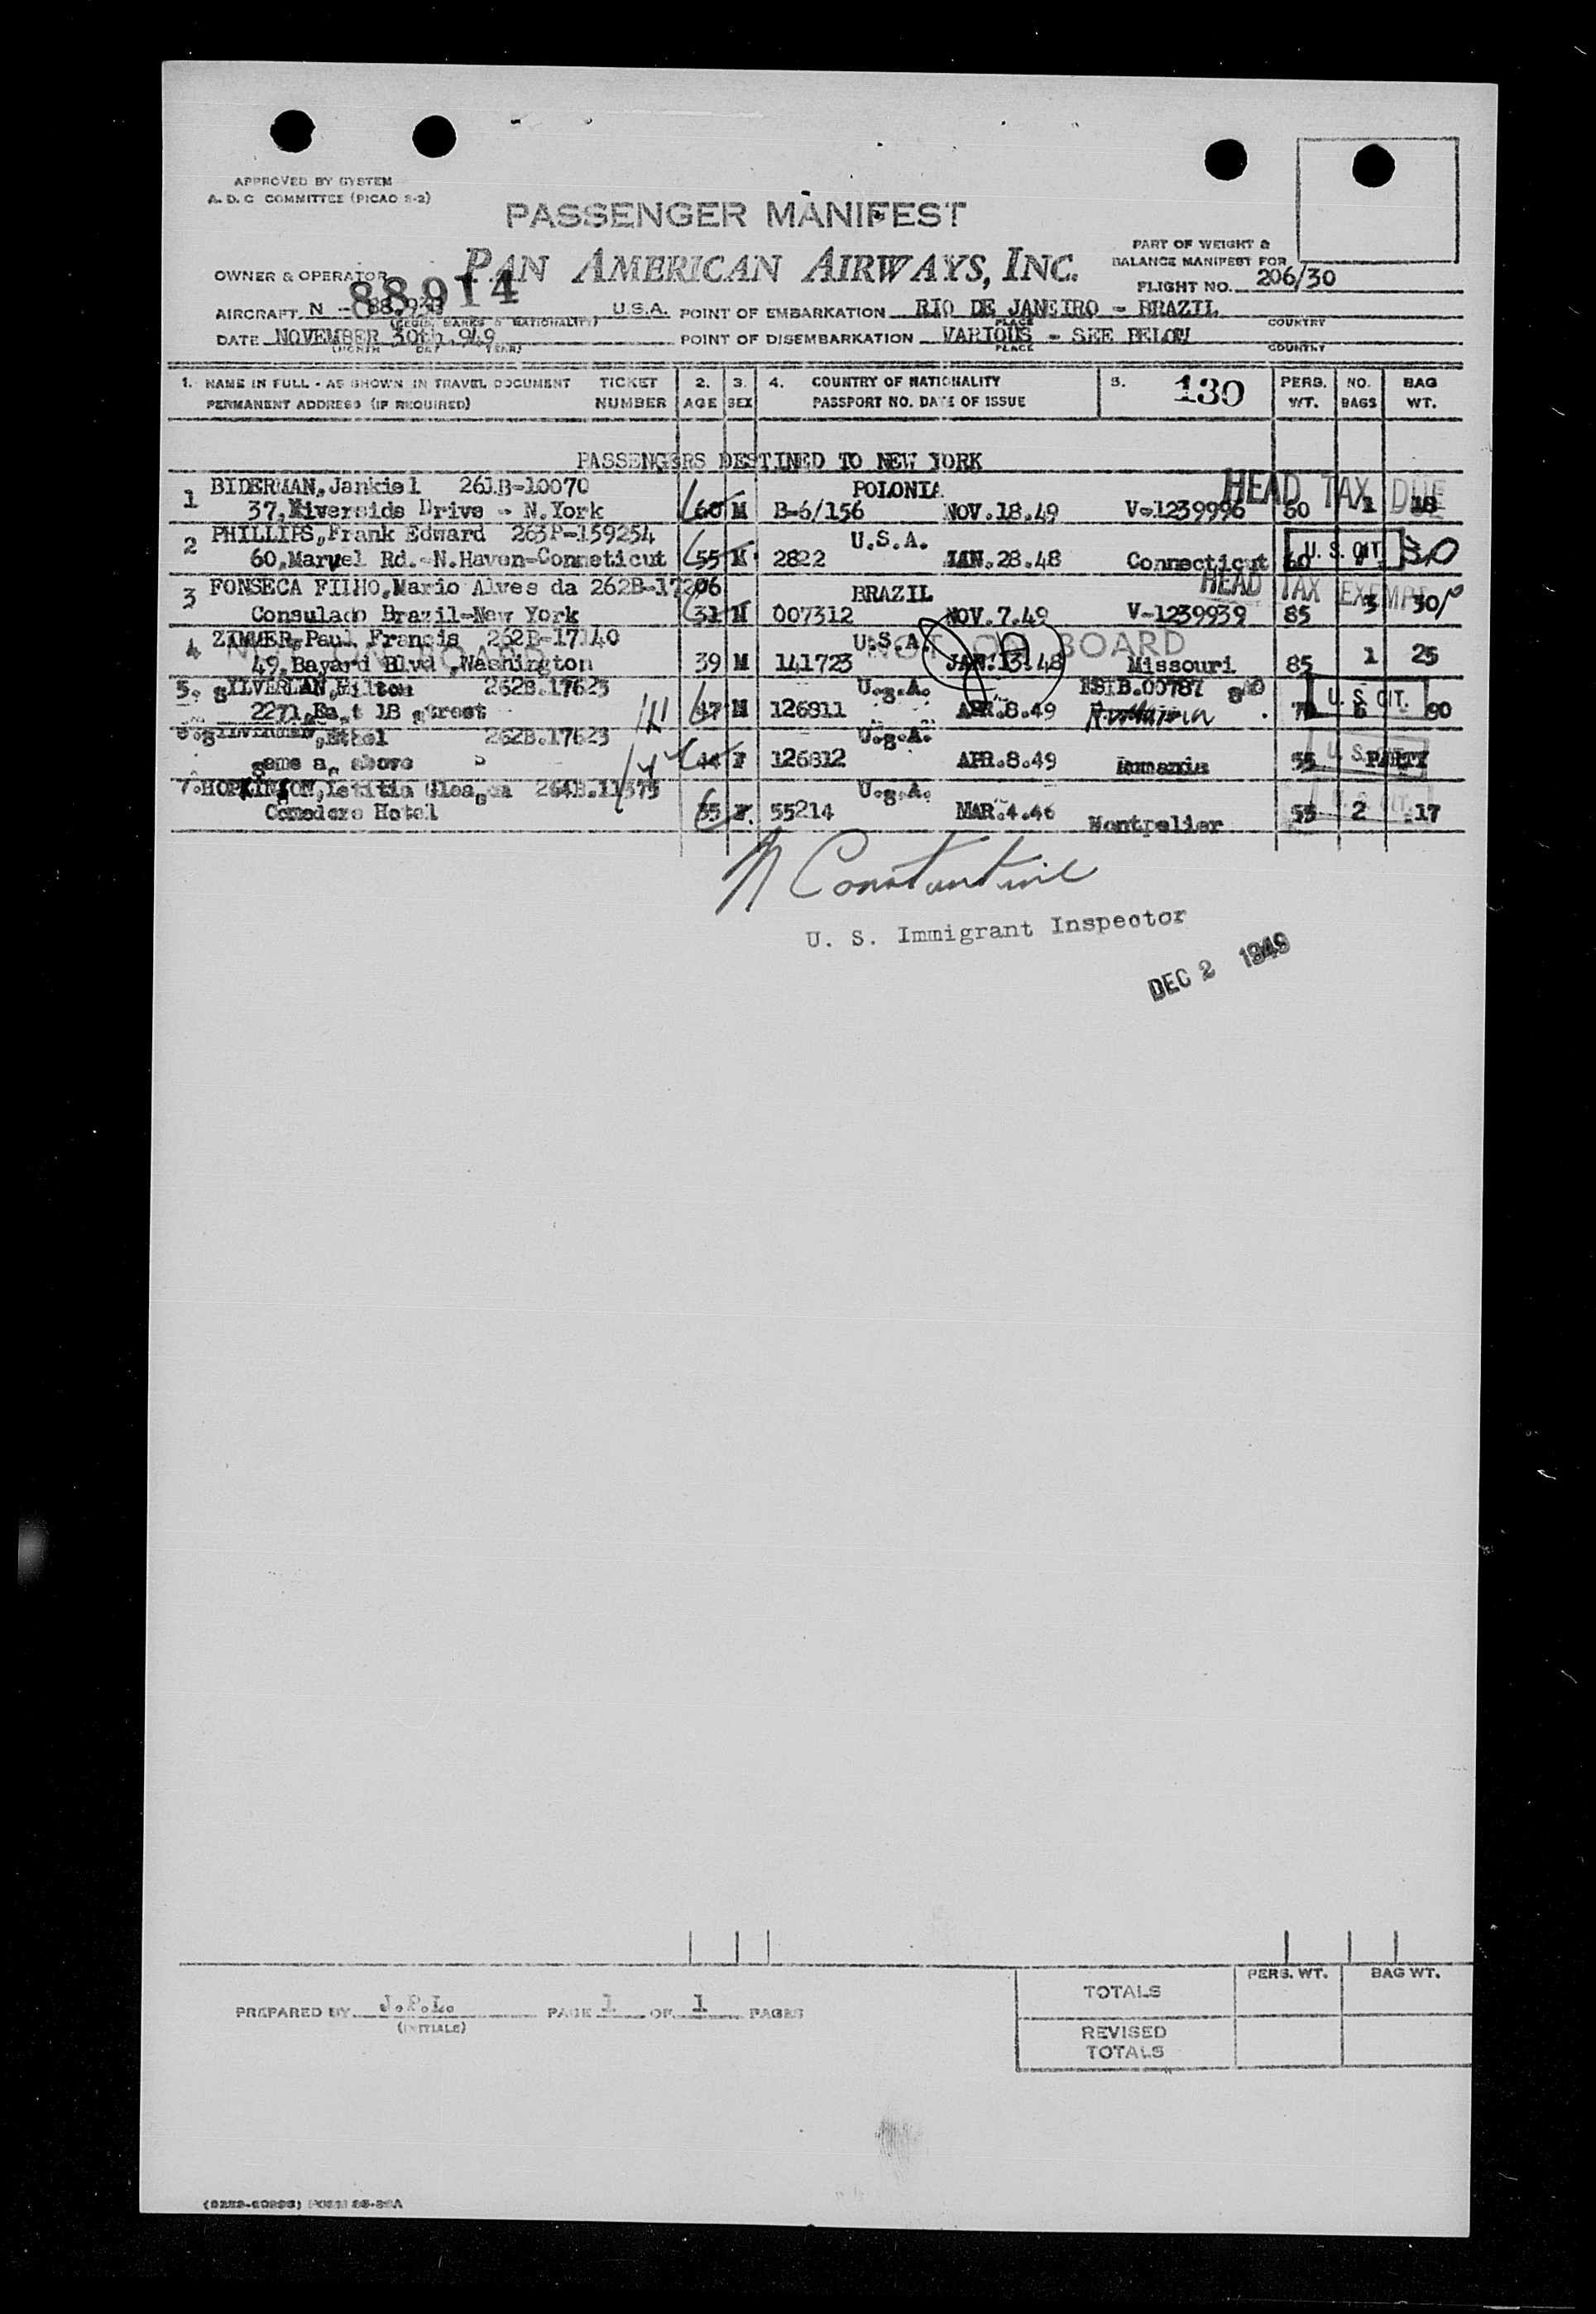 APPROVED BY SYSTEM
A. D. C COMMITTEE (PICAO S-2)
PASSENGER MANIFEST
PAN AMERICAN AIRWAYS, INC.
PART OF WEIGHT &
BALANCE MANIFEST FOR
OWNER & OPERATOR
88914
FLIGHT NO. 206/30
AIRCRAFT N - U.S.A. POINT OF EMBARKATION RIO DE JANEIRO - BRAZIL
(REGIS. MARKS & NATIONALITY) PLACE COUNTRY
DATE NOVEMBER 30th. 949 POINT OF DISEMBARKATION VARIOUS - SEE BELOW
(MONTH DAY YEAR) PLACE COUNTRY
1. NAME IN FULL - AS SHOWN IN TRAVEL DOCUMENT TICKET 2. 3. 4. COUNTRY OF NATIONALITY 5. 130 PERS. NO. BAG
PERMANENT ADDRESS (IF REQUIRED) NUMBER AGE SEX PASSPORT NO. DATE OF ISSUE WT. BAGS WT.
PASSENGERS DESTINED TO NEW YORK
1 BIDERMAN, Jankiel 261B-10070 POLONIA HEAD TAX DUE
37, Riverside Drive - N.York 60 M B-6/156 NOV.18.49 V-1239996 60 1 18
2 PHILLIPS, Frank Edward 263P-159254 U.S.A. U. S. CIT.
60, Marvel Rd.-N.Haven-Conneticut 55 M 2822 JAN.28.48 Connecticut 60 30
3 FONSECA FILHO, Mario Alves da 262B-17206 BRAZIL HEAD TAX EXEMPT
Consulado Brazil-New York 31 M 007312 NOV.7.49 V-1239939 85 3 30
4 ZIMMER, Paul Francis 262B-17140 U.S.A. NOT ON BOARD
NOT ON BOARD
49, Bayard Blvd, Washington 39 M 141723 JAN.13.48 Missouri 85 1 25
5. SILVERMAN, Milton 262B.17623 U.S.A. U. S. CIT.
2271, East 18 street 47 M 126811 APR.8.49 90
Ethel 262B.17623 U.S.A.
same as above 44 F 126812 APR.8.49 Rumania 55 PARTY
7. HOPKINSON, Letitia 264B.11375 U.S.A.
Comodero Hotel 35 F. 55214 MAR.4.46 Montpelier 55 2 17
N Constantine
U. S. Immigrant Inspector
DEC 2 1949
PERS. WT. BAG WT.
TOTALS
PREPARED BY J.P.L. PAGE 1 OF 1 PAGES
(INITIALS)
REVISED
TOTALS